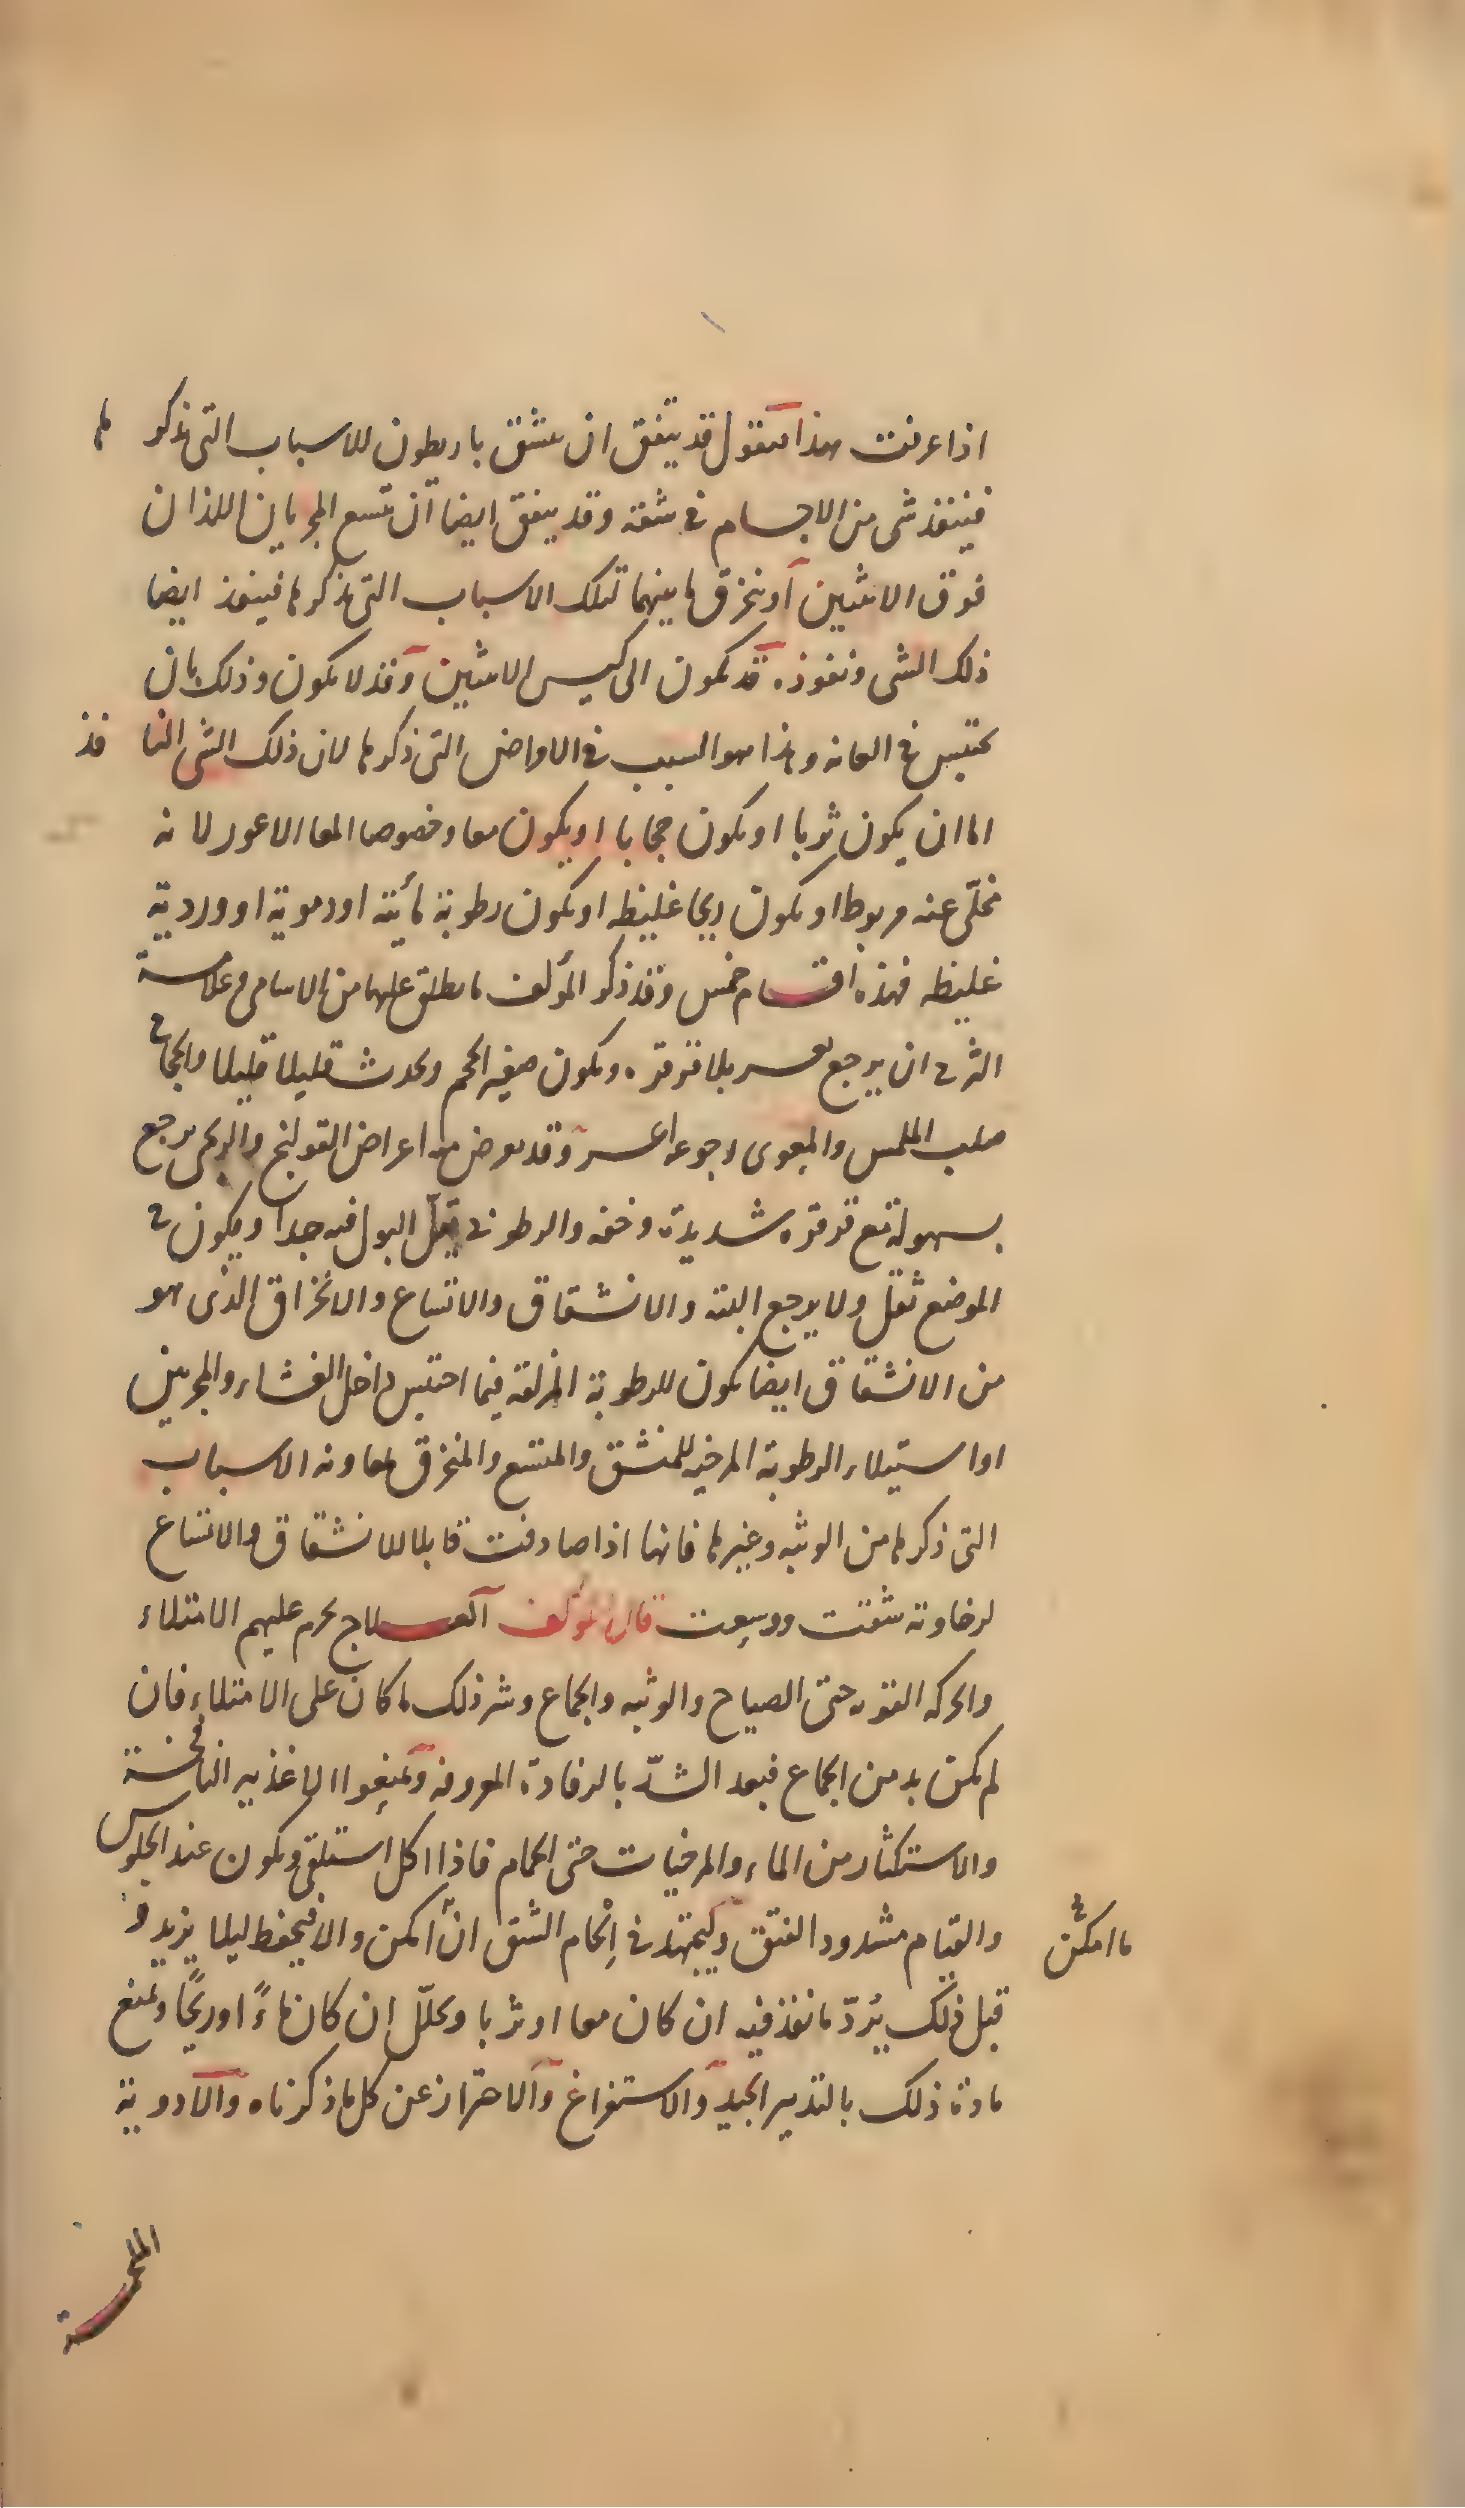 اذا عرفت هذا فنقول قد يتفق ان ينشق باريطون للاسباب التى نذكرها
فينفذ شى من الاجسام فى شقه وقد يتفق ايضا ان يتسع المجريان اللذان
فوق الانثيين او ينخرق ما بينهما تلك الاسباب التى نذكرها فينفذ ايضا
ذلك الشى ونفوذه قد يكون الى كيس الانثيين وقد لا يكون وذلك بان
يحتبس فى العانه وهذا هو السبب فى الامراض التى ذكرها لان ذلك الشى النافذ
اما ان يكون ثربا او يكون حجابا او يكون معا وخصوصا المعا الاعور لانه
مخلّى عنه مربوط او يكون ريحا غليظه او يكون رطوبة مائية او دموية او وردية
غليظه فهذه اقسام خمس وقد ذكر المؤلف ما يطلق عليها من الاسامى وعلامة
الثرب ان يرجع بعسر بلا قرقره ويكون صغير الحجم ويحدث قليلا قليلا والحجابى
صلب الملمس والمعوى رجوعه اعسر وقد يعرض منه اعراض القولنج والريحى يرجع
بسهولة مع قرقره شديدة وخفه والرطوبى يقلّ البول فيه جدا ويكون فى
الموضع ثقل ولا يرجع البته والانشقاق والاتساع والانخراق الذى هو
من الانشقاق ايضا يكون للرطوبة المزلقه فيما احتبس داخل الغشاء والمجريين
او استيلاء الرطوبة المرخيه للمنشق والمتسع والمنخرق لمعاونه الاسباب
التى ذكرها من الوثبه وغيرها فانها اذا صادفت قابلا للانشقاق والاتساع
لرخاوته شقت ووسعت قال المؤلف العلاج يحرم عليهم الامتلاء
والحركه القويه حتى الصياح والوثبه والجماع وشر ذلك ما كان على الامتلاء فان
لم يكن بد من الجماع فبعد الشدّ بالرفادة المعروفه ويمنعوا الاغذيه النافخة
والاستكثار من الماء والمرخيات حتى الحمام فاذا اكل استلقى ويكون عند الجلوس
والقيام مشدود الفتق وليجتهد فى اِلحام الشق ان امكن والا فيحفظ ليلا يزيد و
ما امكن
قبل ذلك يُردّ ما نفذ فيه ان كان معا او ثربا ويحلّل ان كان ماءً او ريحًا ويمنع
مادة ذلك بالتدبير الجيد والاستفراغ والاحتراز عن كل ما ذكرناه والادوية
الملحمة